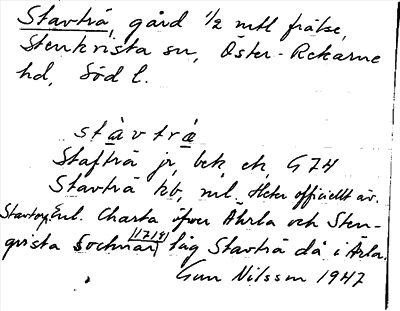 Stavträ, gård 1/2 mtl frälse,
Stenkvista sn, Öster-Rekarne
hd, Södl.
stàvtrá
Stafträ jr, bek ek G74
Stavträ kb, ml. Heter officiellt äv.
Stavtorp. Enl. Charta öfver Ährla och Sten-
qvista Socknar [1719] låg Stavträ då i Ärla.
Gun Nilsson 1947